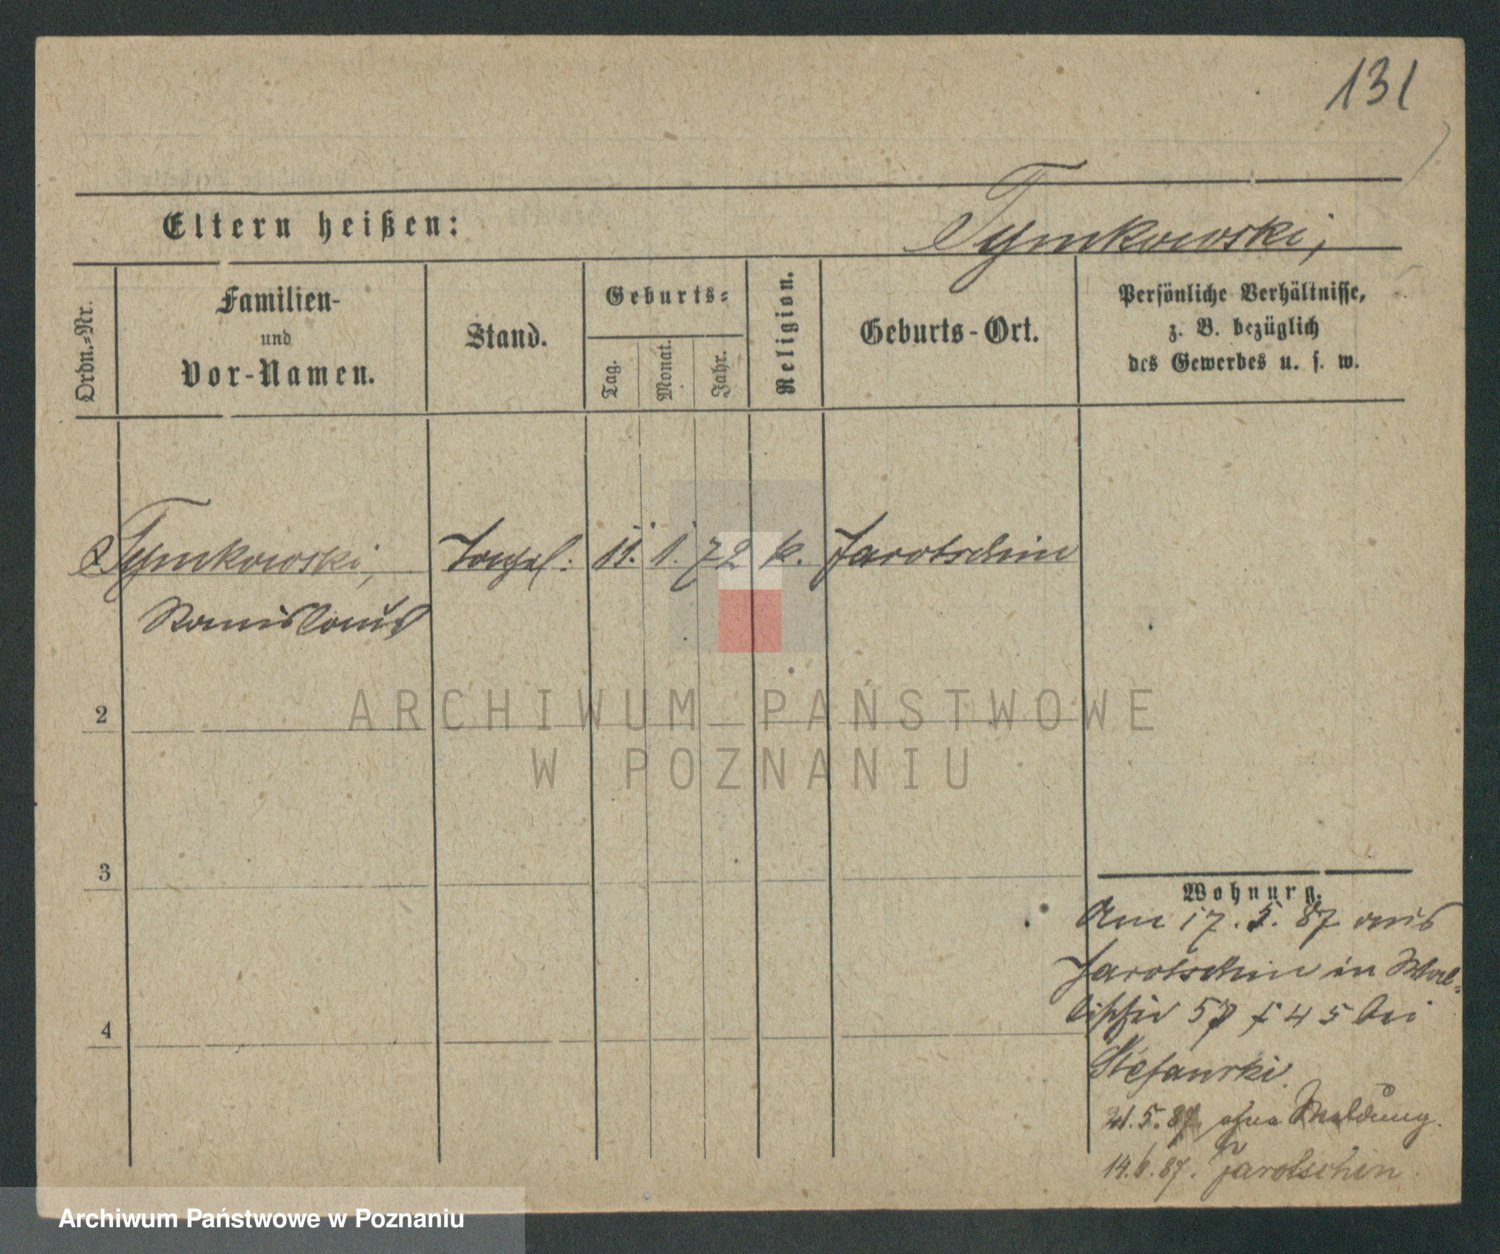 131
Eltern heißen: Tymkowski,
Ordn.-Nr.
Familien-
und
Vor-Namen.
Stand.
Geburts-
Tag.
Monat.
Jahr.
Religion.
Geburts-Ort.
Persönliche Verhältnisse,
z. B. bezüglich
des Gewerbes u. s. w.
Tymkowski, 11. 1. 72 k. Jarotschin
Stanislaus
2
ARCHIWUM PAŃSTWOWE
W POZNANIU
3
4
Wohnung.
Am 17. 5. 87 aus
Jarotschin in Wal-
lischei 57 f 45 bei
Stefanski.
21. 5. 87. ohne Meldung.
14. 6. 87. Jarotschin
Archiwum Państwowe w Poznaniu